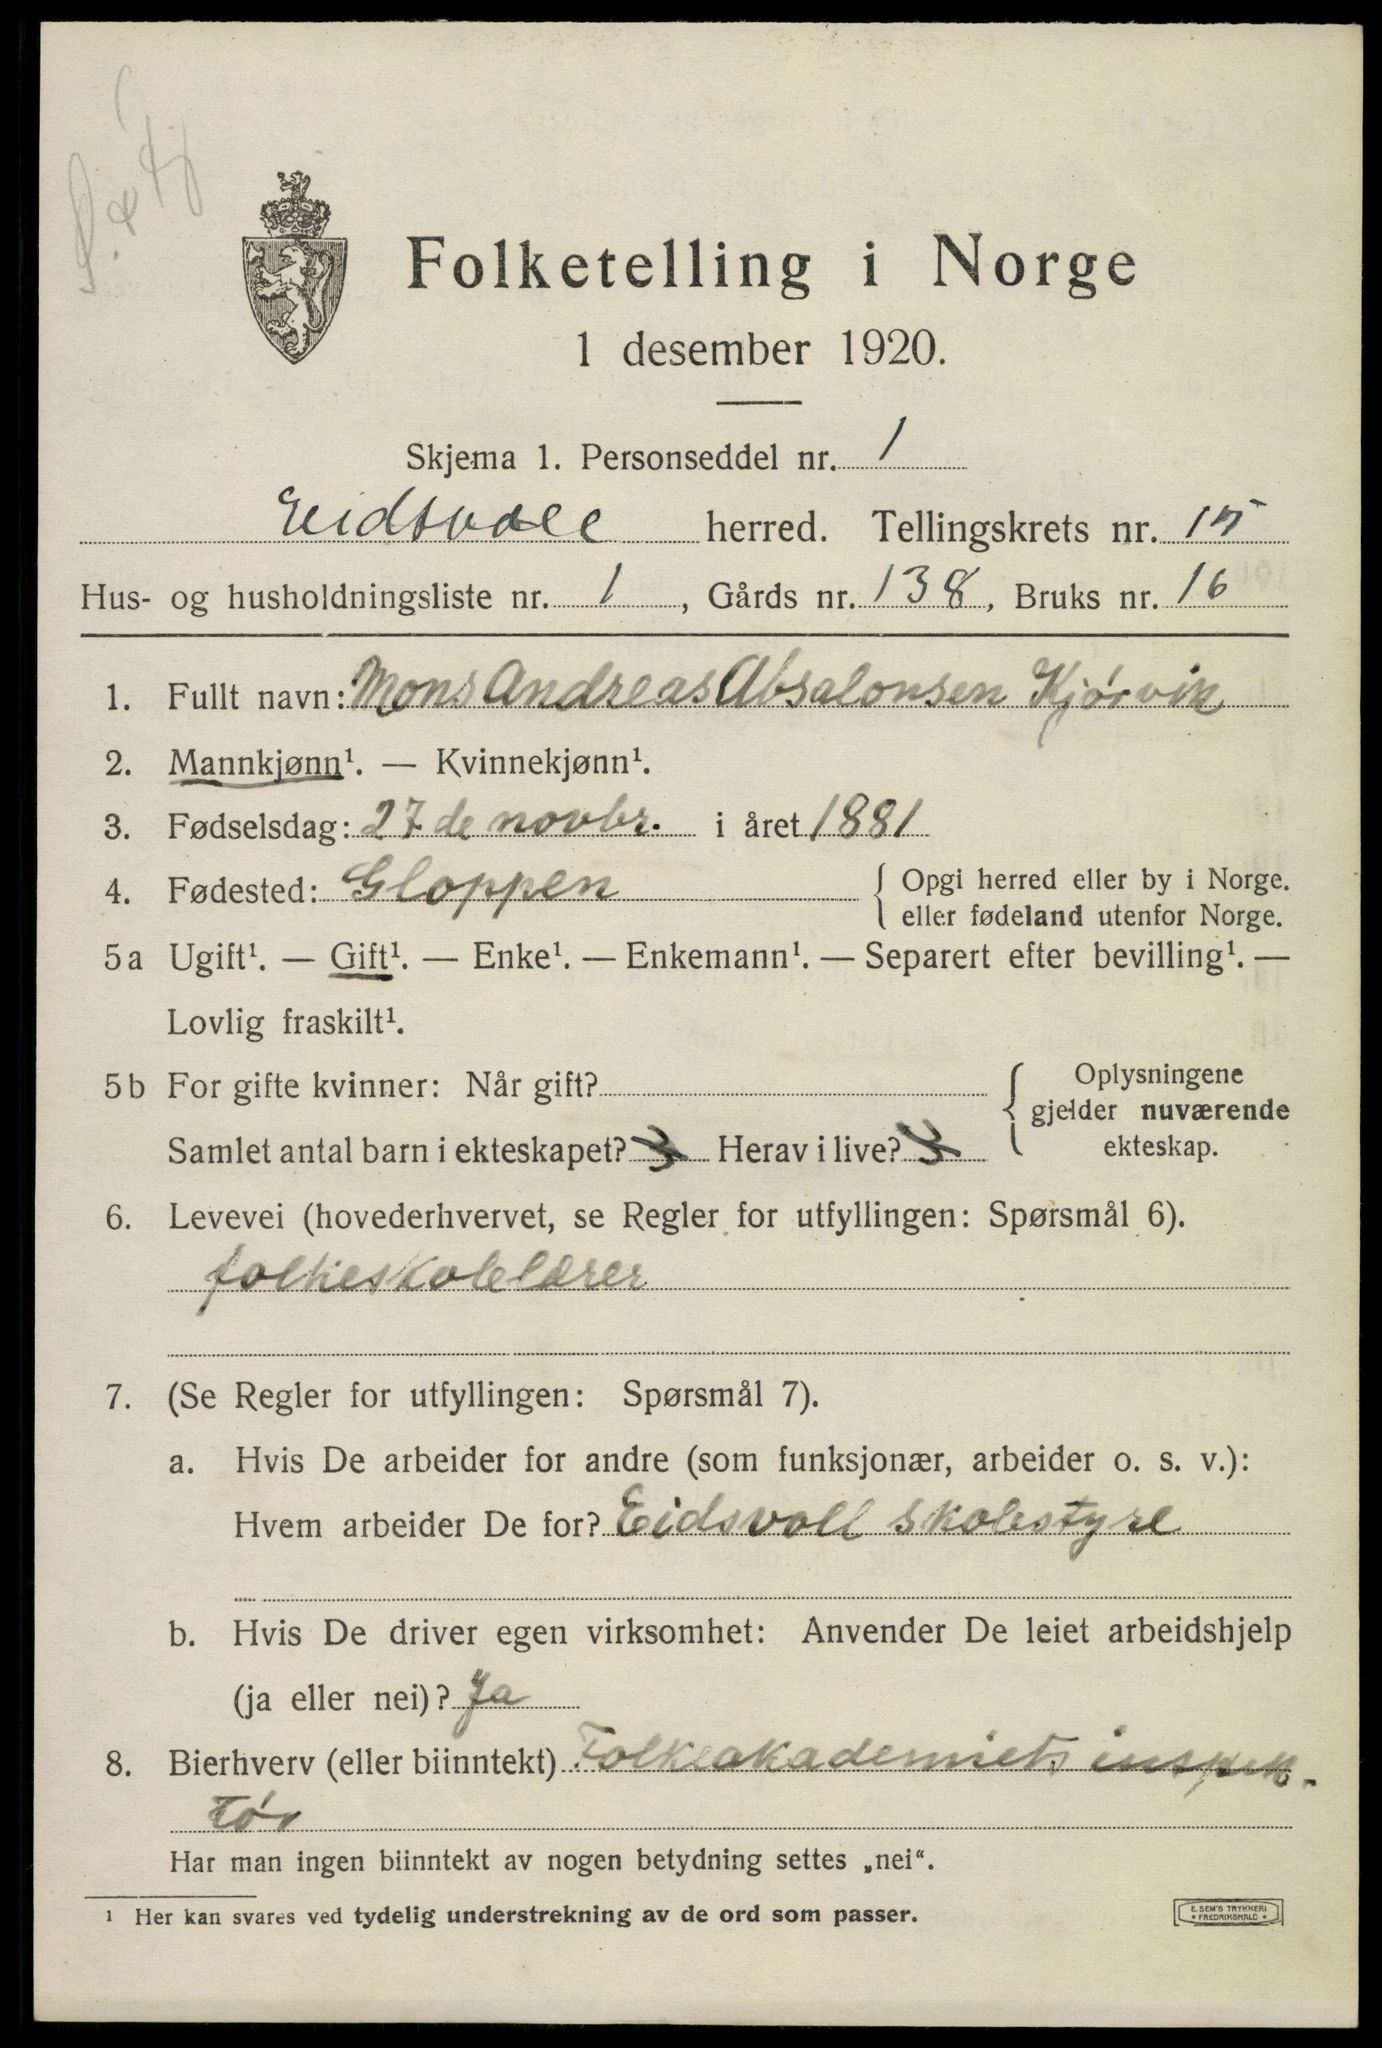 Folketelling i Norge
1 desember 1920.
Skjema 1. Personseddel nr. 1
Eidsvoll herred. Tellingskrets nr. 15
Hus- og husholdningsliste nr. 1, Gårds nr. 138, Bruks nr. 16
1. Fullt navn: Mons Andreas Absalonsen Kjørvik
2. Mannkjønn¹. — Kvinnekjønn¹.
3. Fødselsdag: 27de novbr. i året 1881
4. Fødested: Gloppen { Opgi herred eller by i Norge.
eller fødeland utenfor Norge.
5a Ugift¹. — Gift¹. — Enke¹. — Enkemann¹. — Separert efter bevilling¹. —
Lovlig fraskilt¹.
5b For gifte kvinner: Når gift? { Oplysningene
gjelder nuværende
ekteskap.
Samlet antal barn i ekteskapet? 3 Herav i live? 3
6. Levevei (hovederhvervet, se Regler for utfyllingen: Spørsmål 6).
folkeskolelærer
7. (Se Regler for utfyllingen: Spørsmål 7).
a. Hvis De arbeider for andre (som funksjonær, arbeider o. s. v.):
Hvem arbeider De for? Eidsvoll skolestyre
b. Hvis De driver egen virksomhet: Anvender De leiet arbeidshjelp
(ja eller nei)? Ja
8. Bierhverv (eller biinntekt) Folkeakademiets inspek-
tør
Har man ingen biinntekt av nogen betydning settes „nei“.
¹ Her kan svares ved tydelig understrekning av de ord som passer.
E. SEM'S TRYKKERI
* FREDRIKSHALD *